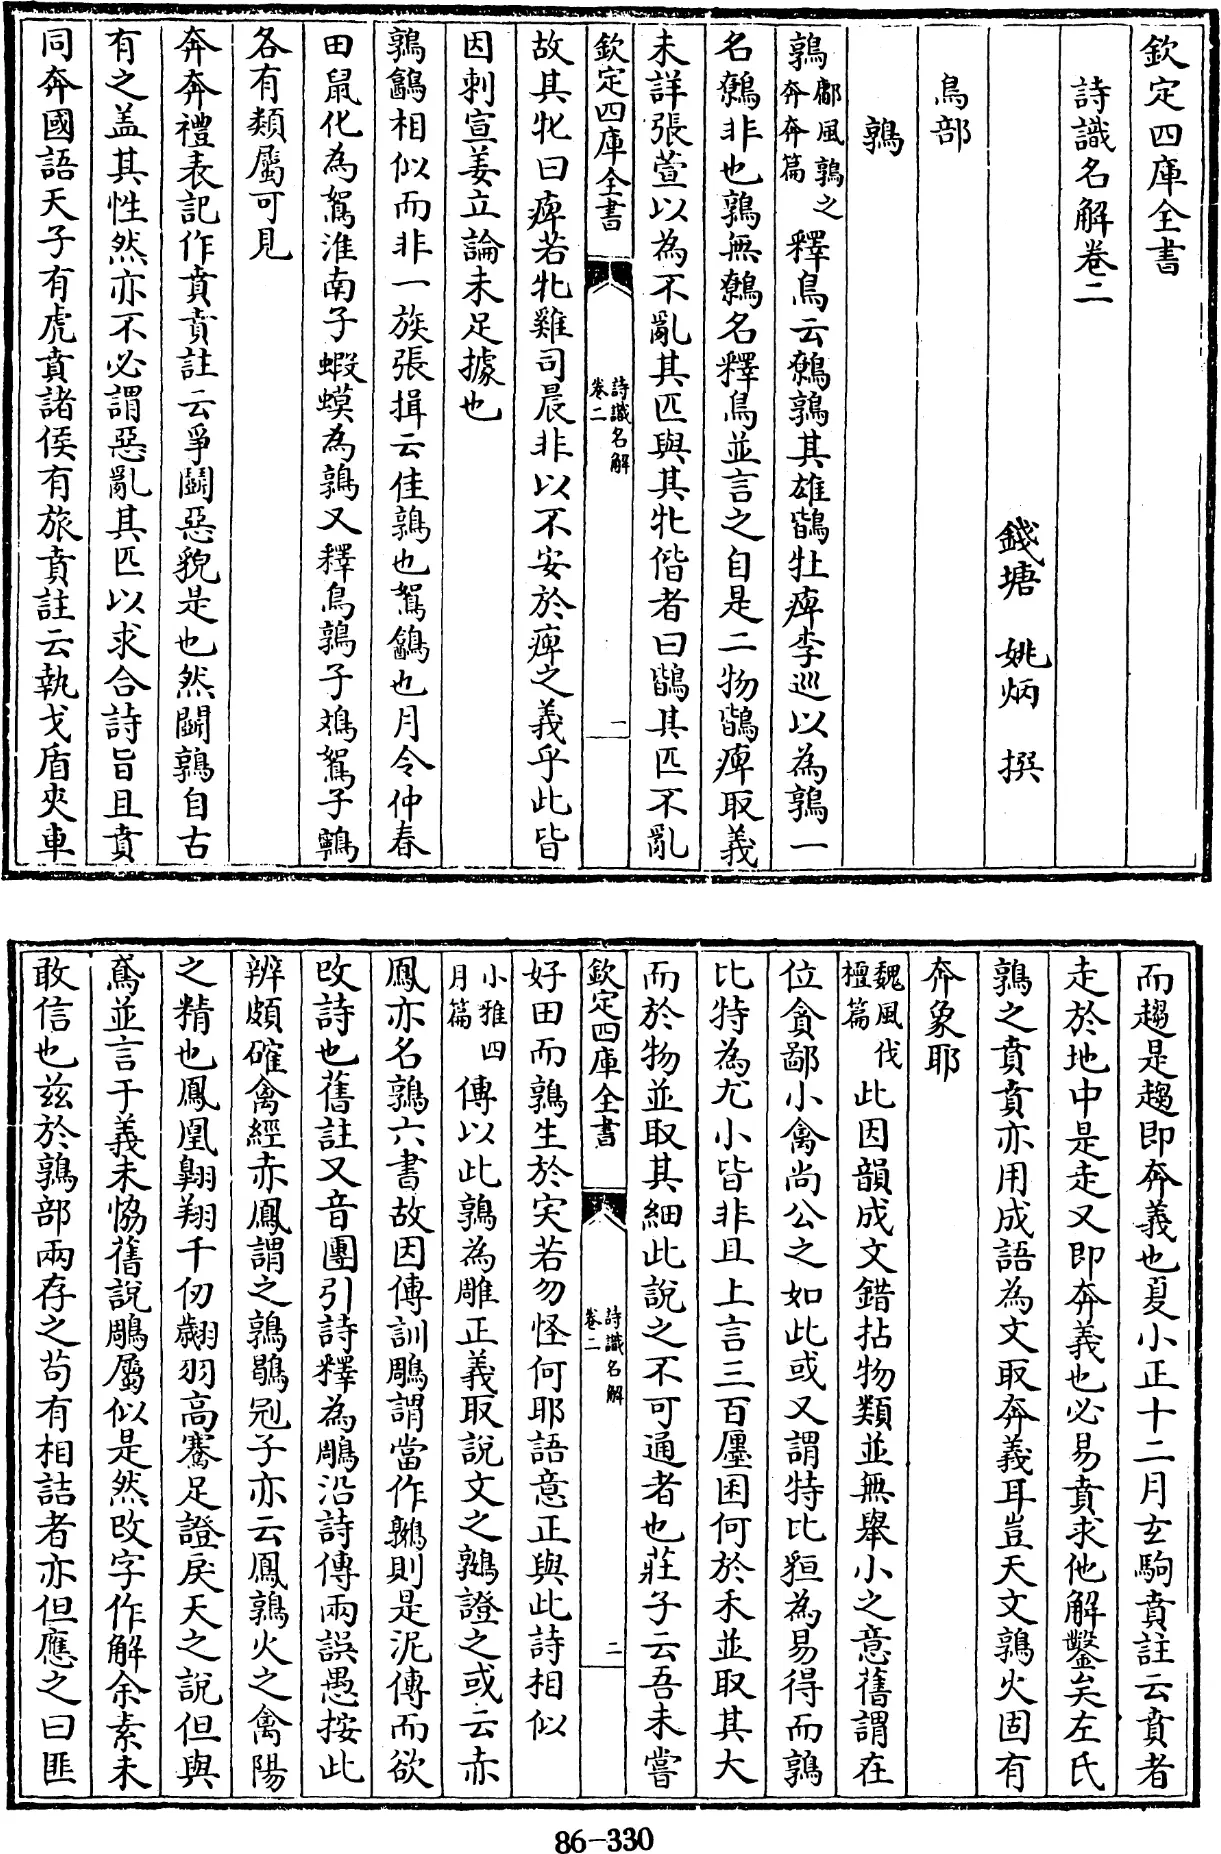 欽定四庫全書
詩識名解卷二
錢塘 姚炳 撰
鳥部
鶉
鶉鄘風鶉之奔奔篇 釋鳥云鷯鶉其雄鶛牡痺李巡以為鶉一
名鷯非也鶉無鷯名釋鳥並言之自是二物鶛痺取義
未詳張萱以為不亂其匹與其牝偕者曰鶛其匹不亂
欽定四庫全書 詩識名解卷二 一
故其牝曰痺若牝雞司晨非以不安於痺之義乎此皆
因刺宣姜立論未足據也
鶉鷂相似而非一族張揖云佳鶉也鴽鷂也月令仲春
田鼠化為鴽淮南子蝦蟆為鶉又釋鳥鶉子鳼鴽子鸋
各有類屬可見
奔奔禮表記作賁賁註云爭鬭惡貌是也然鬭鶉自古
有之盖其性然亦不必謂惡亂其匹以求合詩旨且賁
同奔國語天子有虎賁諸侯有旅賁註云執戈盾夾車
而趨是趨即奔義也夏小正十二月玄駒賁註云賁者
走於地中是走又即奔義也必易賁求他解鑿矣左氏
鶉之賁賁亦用成語為文取奔義耳豈天文鶉火固有
奔象耶
魏風伐檀篇 此因韻成文錯拈物類並無舉小之意舊謂在
位貪鄙小禽尚公之如此或又謂特比貆為易得而鶉
比特為尤小皆非且上言三百廛囷何於禾並取其大
而於物並取其細此說之不可通者也莊子云吾未嘗
欽定四庫全書 詩識名解卷二 二
好田而鶉生於宎若勿怪何耶語意正與此詩相似
小雅四月篇 傳以此鶉為雕正義取說文之鷻證之或云赤
鳳亦名鶉六書故因傳訓鵰謂當作鷻則是泥傳而欲
改詩也舊註又音團引詩釋為鵰沿詩傳兩誤愚按此
辨頗確禽經赤鳳謂之鶉鶡冠子亦云鳳鶉火之禽陽
之精也鳳凰翺翔千仞翽羽高騫足證戾天之說但與
鳶並言于義未恊舊說鵰屬似是然改字作解余素未
敢信也兹於鶉部兩存之茍有相詰者亦但應之曰匪
86-330